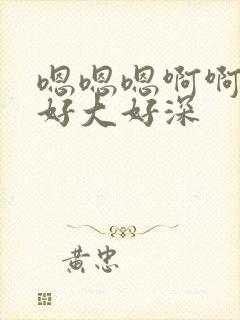 嗯嗯嗯啊啊
好大好深
黄忠